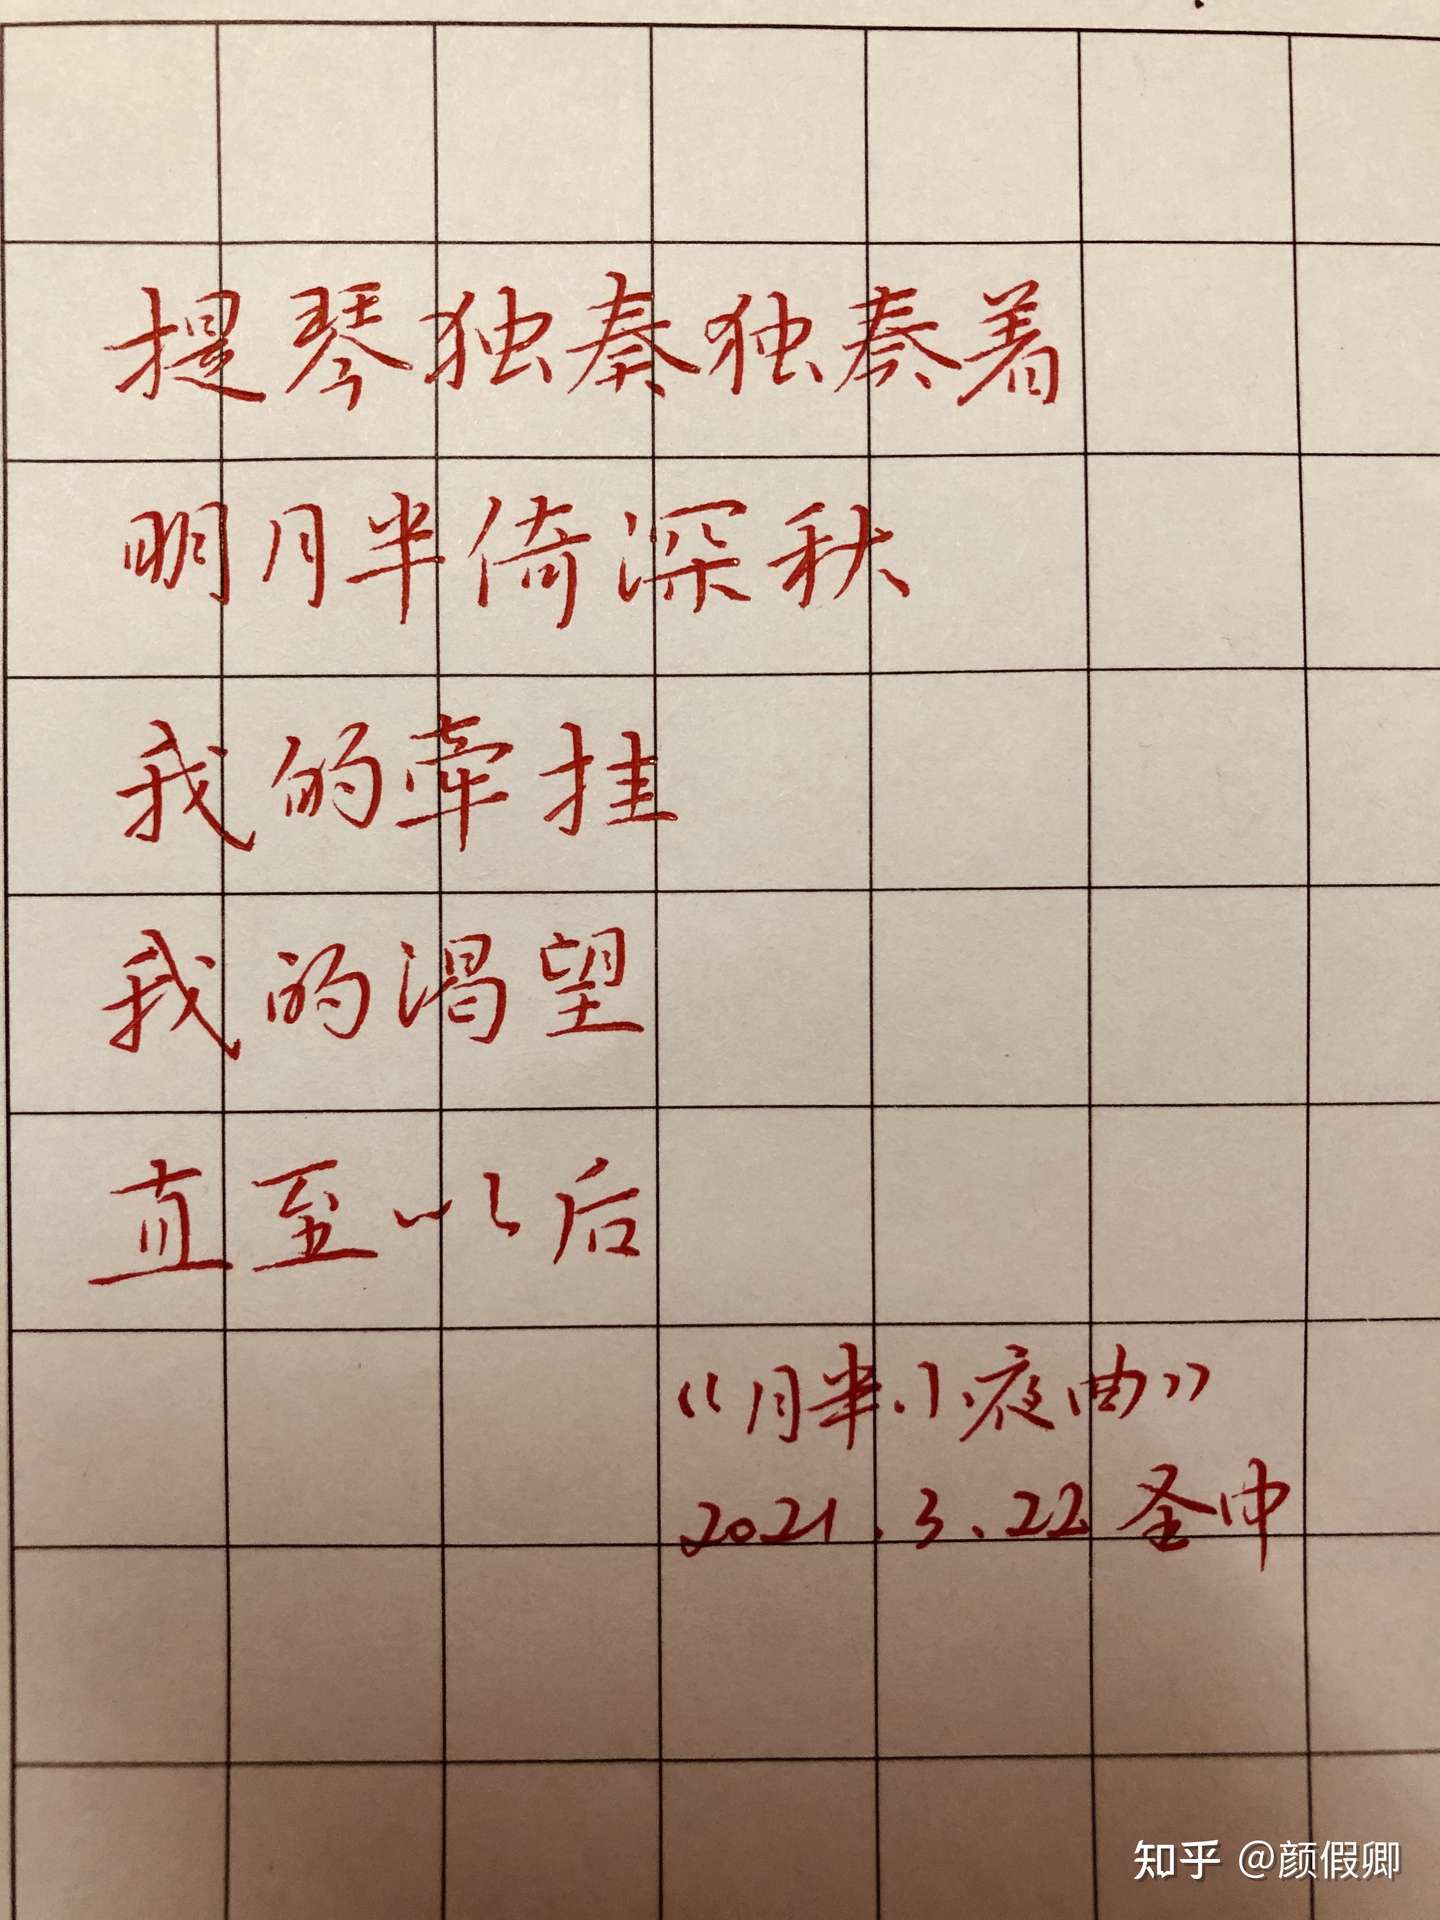 提琴独奏独奏着
明月半倚深秋
我的牵挂
我的渴望
直至以后
《月半小夜曲》
2021.3.22 圣中
知乎 @颜假卿